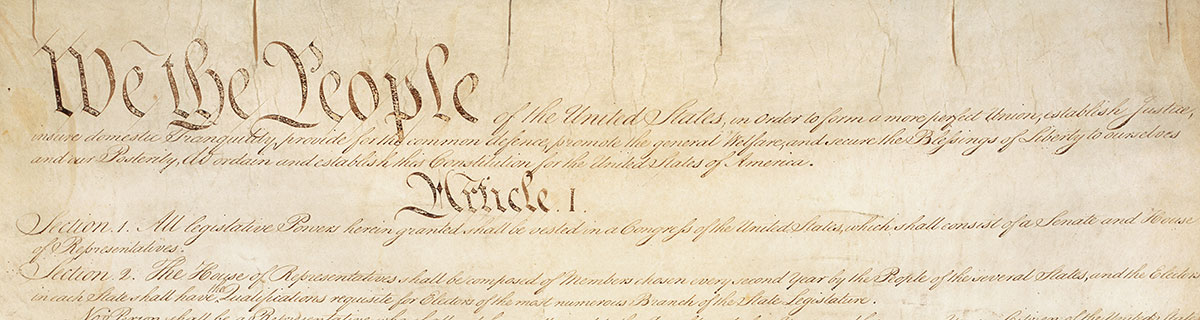 We the People of the United States, in Order to form a more perfect Union, establish Justice,
insure domestic Tranquility, provide for the common defence, promote the general Welfare, and secure the Blessings of Liberty to ourselves
and our Posterity, do ordain and establish this Constitution for the United States of America.
Article. I.
Section. 1. All legislative Powers herein granted shall be vested in a Congress of the United States, which shall consist of a Senate and House
of Representatives.
Section. 2. The House of Representatives shall be composed of Members chosen every second Year by the People of the several States, and the Electors
in each State shall have the Qualifications requisite for Electors of the most numerous Branch of the State Legislature.
No Person shall be a Representative who shall